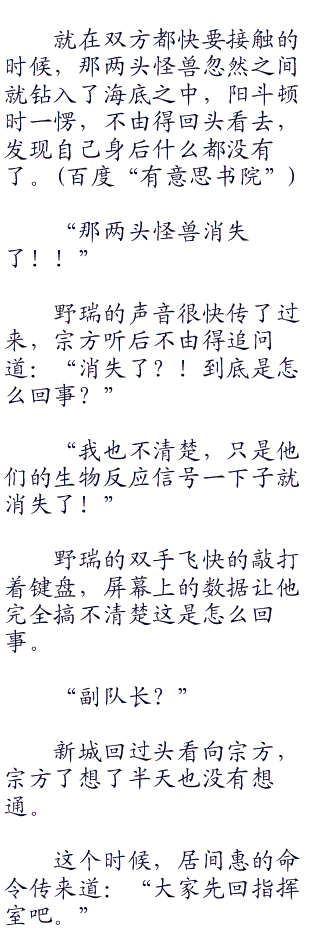 就在双方都快要接触的
时候，那两头怪兽忽然之间
就钻入了海底之中，阳斗顿
时一愣，不由得回头看去，
发现自己身后什么都没有
了。(百度“有意思书院”)
“那两头怪兽消失
了！！”
野瑞的声音很快传了过
来，宗方听后不由得追问
道：“消失了？！到底是怎
么回事？”
“我也不清楚，只是他
们的生物反应信号一下子就
消失了！”
野瑞的双手飞快的敲打
着键盘，屏幕上的数据让他
完全搞不清楚这是怎么回
事。
“副队长？”
新城回过头看向宗方，
宗方了想了半天也没有想
通。
这个时候，居间惠的命
令传来道：“大家先回指挥
室吧。”